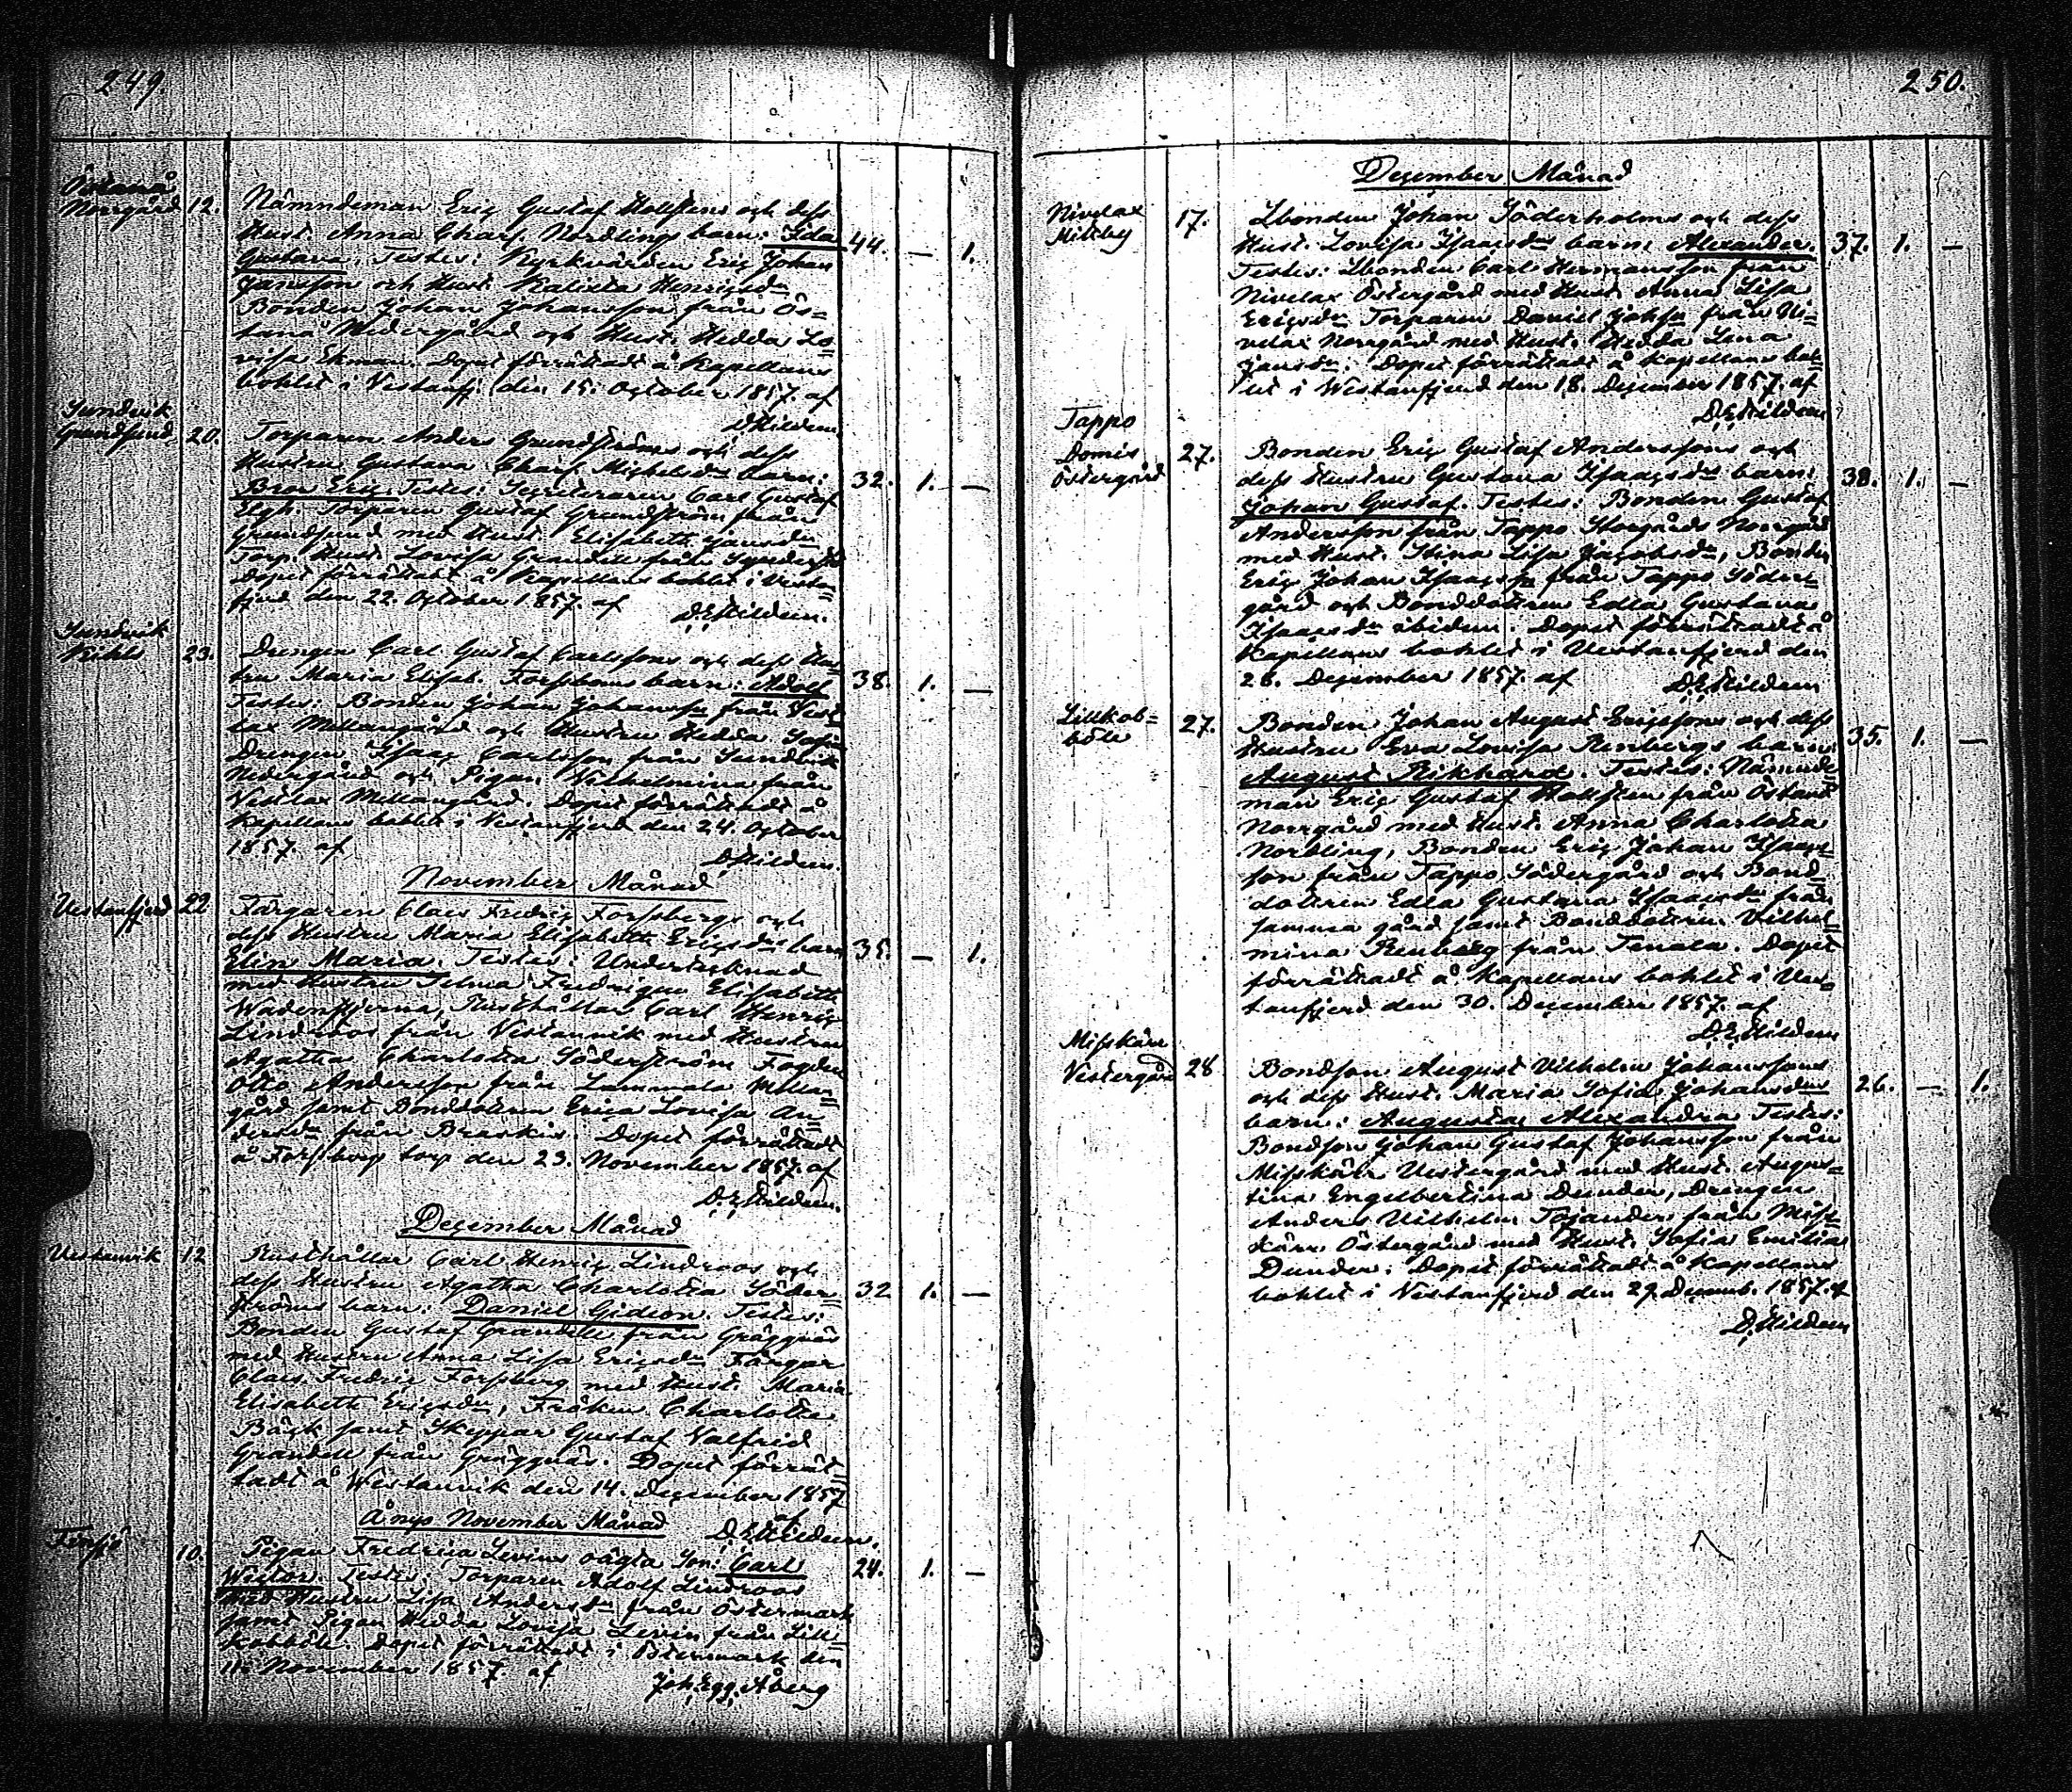 249.
Östanå
Norrgård 12. Nämndeman Eric Gustaf Hollstens och dess
Hust. Anna Charl. Nordlings barn: Ida 44. — 1.
Gustava. Testes: Kyrkvärden Eric Johan
Jansson och Hust. Henricsdr
Bonden Johan Johansson från Ös=
tanå Nedergård och Hust. Hedda Lo=
visa Ekman. Dopet förrättadt å Kapellans
bohlet i Vestanfj. den 15. October 1857. af
D.Hildeen.
Sundvik
Grundsund 20. Torparen Anders Grundströms och dess
Hustru Gustava Charl. Michelsdrs barn: 32. 1. —
Bror Eric. Testes: Carl Gustaf
Elgh. Torparen Gustaf Grundström från
Grundsund med Hust. Elisabeth Jansdr
Torp. Hust. Lovisa Grandell från
Dopet förrättadt å Kapellans bohlet i Vestan=
fjerd den 22. October 1857. af D.E.Hildeen.
Sundvik
23. Drengen Carl Gustaf Carlssons och dess Hus=
tru Maria Elisab. Forsboms barn: Adolf 38. 1. —
Testes: Bonden Johan Johanss. från Vest=
lax Mellangård och Hustru Hedda Sofia
Drengen Isaac Carlsson från Sundvik
Nedergård och Pigan Wilhelmina från
Vestlax Mellangård. Dopet förrättadt å
Kapellans bohlet i Vestanfjerd den 24. October
1857. af D.Hildeen.
November Månad
Vestanfjerd 22 Färgaren Claes Fredric Forssbergs och
dess Hustru Maria Elisabeth Ericsdrs barn 35. — 1.
Elin Maria. Testes: Undertecknad
med Hustru Selma Fredrique Elisabeth
Wadenstjerna, Rusthållar Carl Henric
Lindroos från Vestanvik med Hustru
Agatha Charlotta Söderström Fogden
Otto Andersson från Lammala Mellan=
gård samt Bonddottren Erica Lovisa An=
dersdr från Brokis. Dopet förrättadt
å Forsbergs torp den 23. November 1857. af
D.E.Hildeen.
December Månad
Vestanvik 12 Rusthållar Carl Henric Lindroos och
dess Hustru Agatha Charlotta Söder= 32 1. —
ströms barn: Daniel Gideon. Testes:
Bonden Gustaf Grandell från Gräggnäs
med Hustru Anna Lisa Ericsdr Färgar
Claes Fredric Forssberg med Hust. Maria
Elisabeth Ericsdr, Fröken Charlotta
Bäck samt Skeppar Gustaf Valfrid
Grandell från Gräggnäs. Dopet förrät=
tadt å Westanvik den 14. December 1857
af
Å nyo November Månad D.E.Hildeen.
10. Pigan Fredrica Levins oägta Son: Carl 24. 1. —
Wictor. Testes: Torparen Adolf Lindroos
med Hustru Lisa Andersdr från Östermark
samt Pigan Hedda Lovisa Levin från Lill=
kobböle. Dopet förrättadt i Östermark den
11. November 1857. af Joh.Egg.Åberg
250.
December Månad
Nivelax
Mellby 17. Lbonden Johan Söderholms och dess
Hust. Lovisa Isaacsdrs barn: Alexander. 37. 1. —
Testes: Lbonden Carl Hermansson från
Nivelax Östergård med Hust. Anna Lisa
Ericsdr Torparen Daniel Johss. från Ni=
velax Norrgård med Hust. Hedda Lena
Jansdr. Dopet förrättadt å Kapellans boh=
let i Westanfjerd den 18. December 1857. af
D.E.Hildeen
Tappo
Domis
Östergård 27. Bonden Eric Gustaf Anderssons och
dess Hustru Gustava Isaacsdrs barn: 38. 1. —
Johan Gustaf. Testes: Bonden Gustaf
Andersson från Tappo Storgårds Norrgård
med Hust. Stina Lisa Jacobsdr, Bonden
Eric Johan Isaacss. från Tappo Söder=
gård och Bonddottren Edla Gustava
Isaacsdr ibidem. Dopet förrättadt å
Kapellans bohlet i Vestanfjerd den
28. December 1857. af D.E.Hildeen
Lillkob=
böle 27. Bonden Johan August Ericssons och dess
Hustru Eva Lovisa Renbergs barn: 35. 1. —
August Rikhard. Testes: Nämnde=
man Eric Gustaf Hollsten från Östanå
Norrgård med Hust. Anna Charlotta
Nordling, Bonden Eric Johan Isaacs=
son från Tappo Södergård och Bond=
dottren Edla Gustava Isaacsdr från
samma gård samt Bonddottren Vilhel=
mina Renberg från Tenala. Dopet
förrättadt å Kapellans bohlet i Ves=
tanfjerd den 30. December 1857. af
D.E.Hildeen
Misskärr
Vestergård 28 Bondson August Vilhelm Johanssons
och dess Hust. Maria Sofia Johansdrs 26. — 1.
barn: Augusta Alexandra Testes:
Bondson Johan Gustaf Johansson från
Misskärr Vestergård med Hust. Augus=
tina Engelbertina Dunder, Drengen
Anders Vilhelm Tojander från Miss=
kärr Östergård med Hust. Sofia Emilia
Dunder. Dopet förrättadt å Kapellans
bohlet i Vestanfjerd den 29. Decemb. 1857. af
D.Hildeen